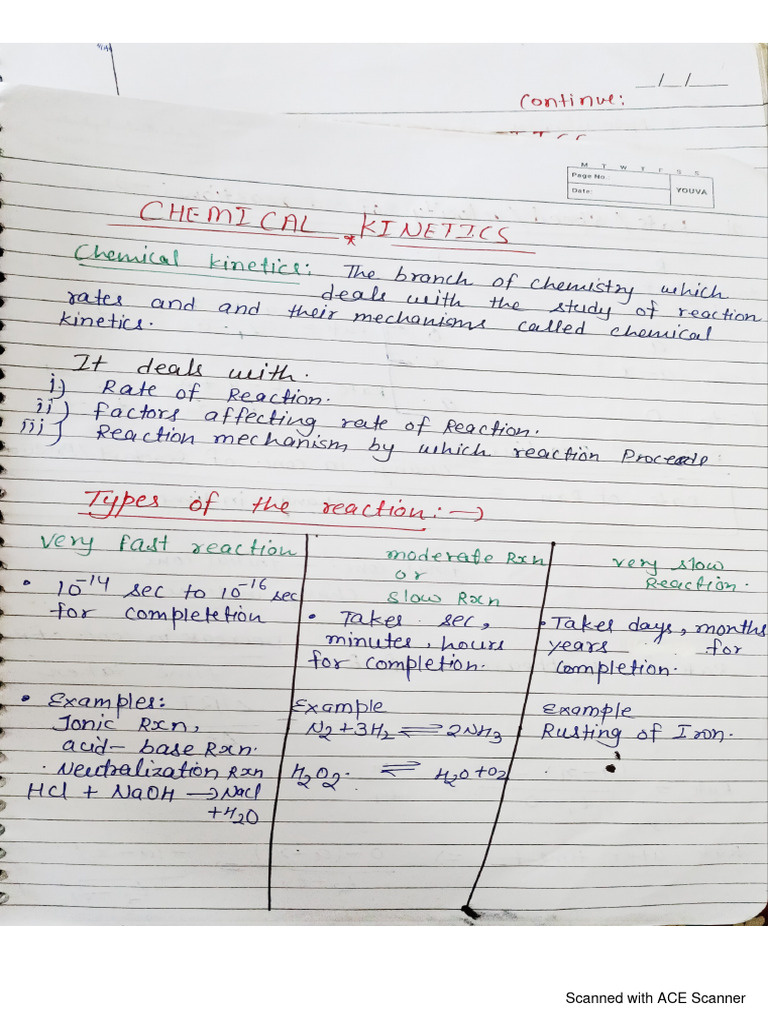 __/__/____
Continue:
M T W T F S S
Page No.
Date:
YOUVA
CHEMICAL KINETICS
Chemical kinetics: The branch of chemistry which
deals with the study of reaction
rates and and their mechanisms called chemical
kinetics.
It deals with.
i) Rate of Reaction.
ii) factors affecting rate of Reaction.
iii) Reaction mechanism by which reaction Proceeds
Types of the reaction:→
very fast reaction
• 10⁻¹⁴ sec to 10⁻¹⁶ sec
for completetion
• Examples:
Ionic Rxn,
acid-base Rxn.
• Neutralization Rxn
HCl + NaOH → NaCl
+ H2O
moderate Rxn
or
slow Rxn
• Takes sec,
minutes, hours
for completion.
Example
N2 + 3H2 ⇌ 2NH3
H2O2. ⇌ H2O + O2
very slow
Reaction.
• Takes days, months
years for
completion.
Example
Rusting of Iron.
Scanned with ACE Scanner